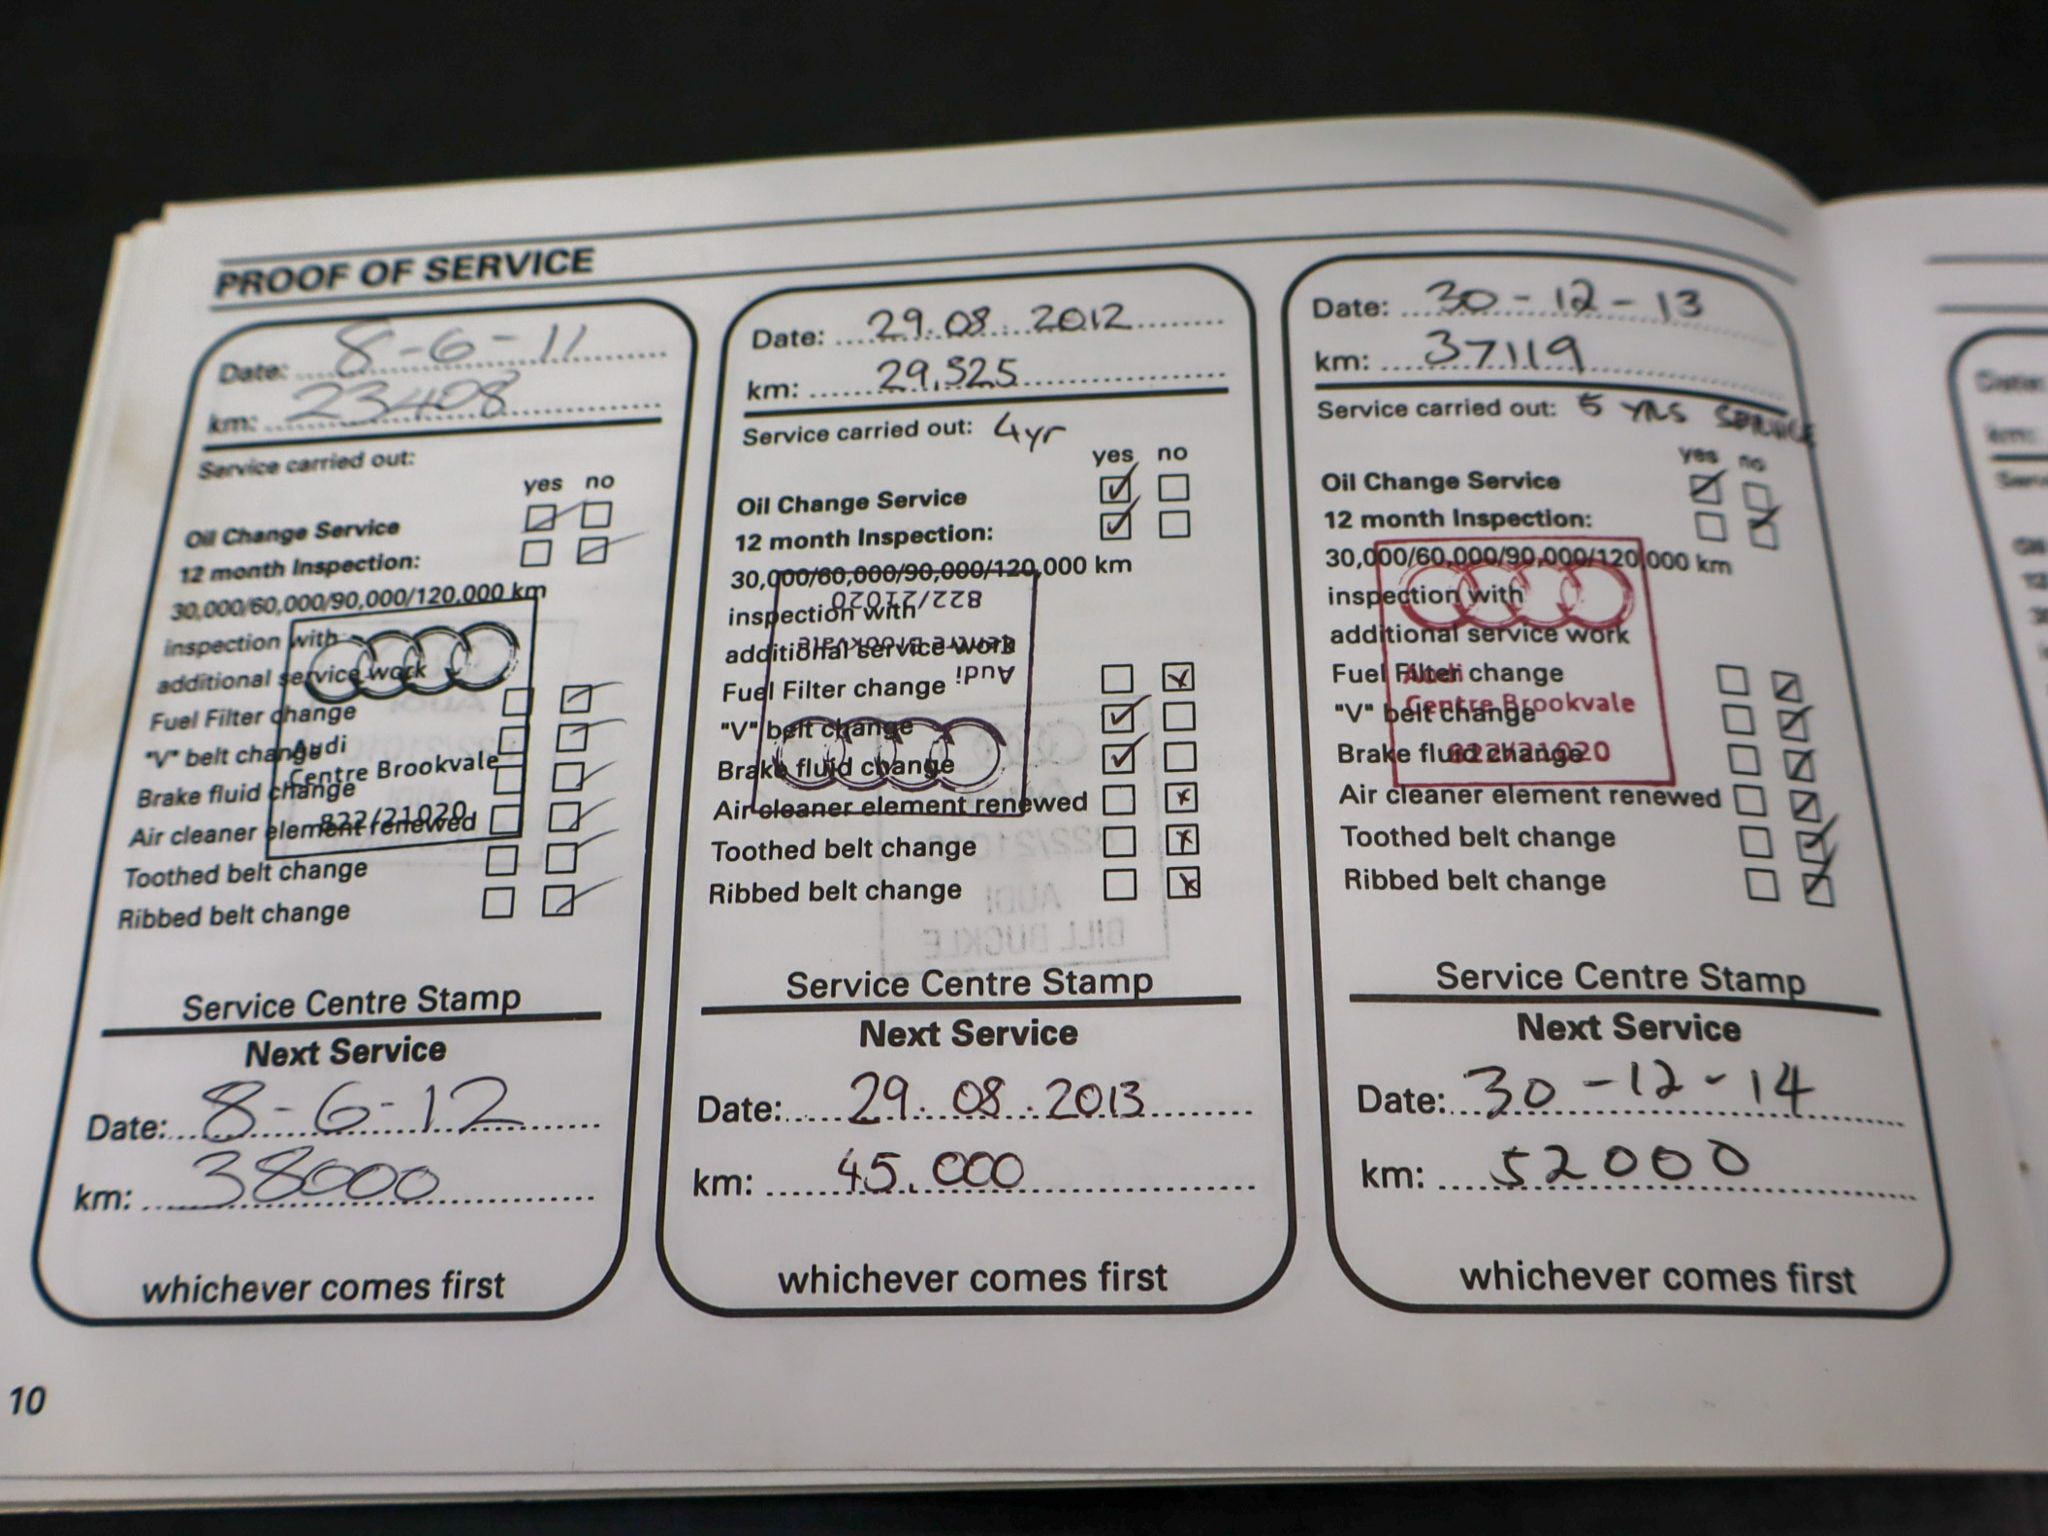 PROOF OF SERVICE
Date: 8-6-11
km: 23408
Service carried out:
yes no
Oil Change Service
12 month Inspection:
30,000/60,000/90,000/120,000 km
inspection with
additional service work
Fuel Filter change
"V" belt change
Brake fluid change
Air cleaner element renewed
Toothed belt change
Ribbed belt change
Audi
Centre Brookvale
822/21020
Service Centre Stamp
Next Service
Date: 8-6-12
km: 38000
whichever comes first
Date: 29.08.2012
km: 29,525
Service carried out: 4yr
yes no
Oil Change Service
12 month Inspection:
30,000/60,000/90,000/120,000 km
inspection with
additional service work
Fuel Filter change
"V" belt change
Brake fluid change
Air cleaner element renewed
Toothed belt change
Ribbed belt change
Audi
Centre Brookvale
822/21020
Service Centre Stamp
Next Service
Date: 29.08.2013
km: 45.000
whichever comes first
Date: 30-12-13
km: 37119
Service carried out: 5 YRS SERVICE
yes no
Oil Change Service
12 month Inspection:
30,000/60,000/90,000/120,000 km
inspection with
additional service work
Fuel Filter change
"V" belt change
Brake fluid change
Air cleaner element renewed
Toothed belt change
Ribbed belt change
Audi
Centre Brookvale
822/21020
Service Centre Stamp
Next Service
Date: 30-12-14
km: 52000
whichever comes first
10